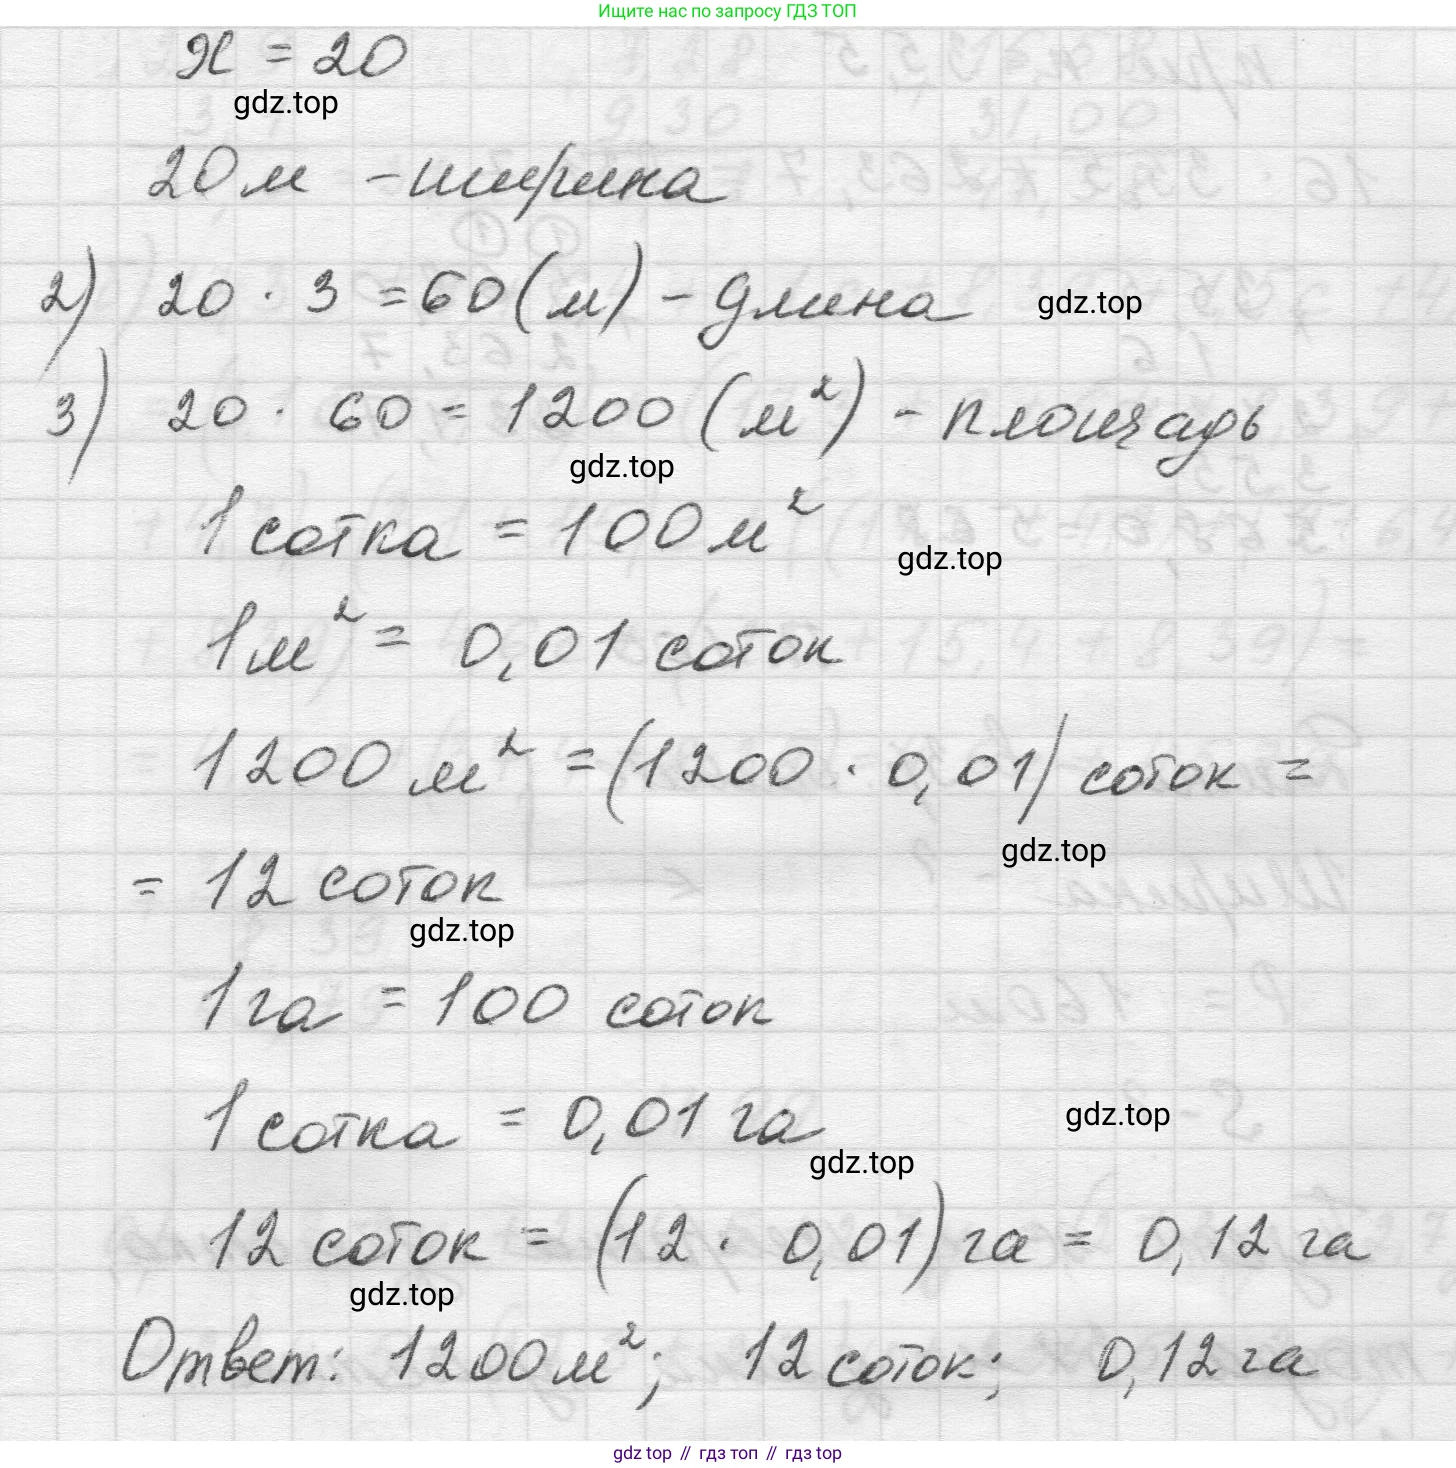 Ищите нас по запросу ГДЗ ТОП
x = 20
gdz.top
20 м - ширина
2) 20 · 3 = 60 (м) - длина
gdz.top
3) 20 · 60 = 1200 (м²) - площадь
gdz.top
1 сотка = 100 м²
gdz.top
1 м² = 0,01 соток
1200 м² = (1200 · 0,01) соток =
gdz.top
= 12 соток
gdz.top
1 га = 100 соток
1 сотка = 0,01 га
gdz.top
gdz.top
12 соток = (12 · 0,01) га = 0,12 га
gdz.top
Ответ: 1200 м²; 12 соток; 0,12 га
gdz top // гдз топ // гдз top